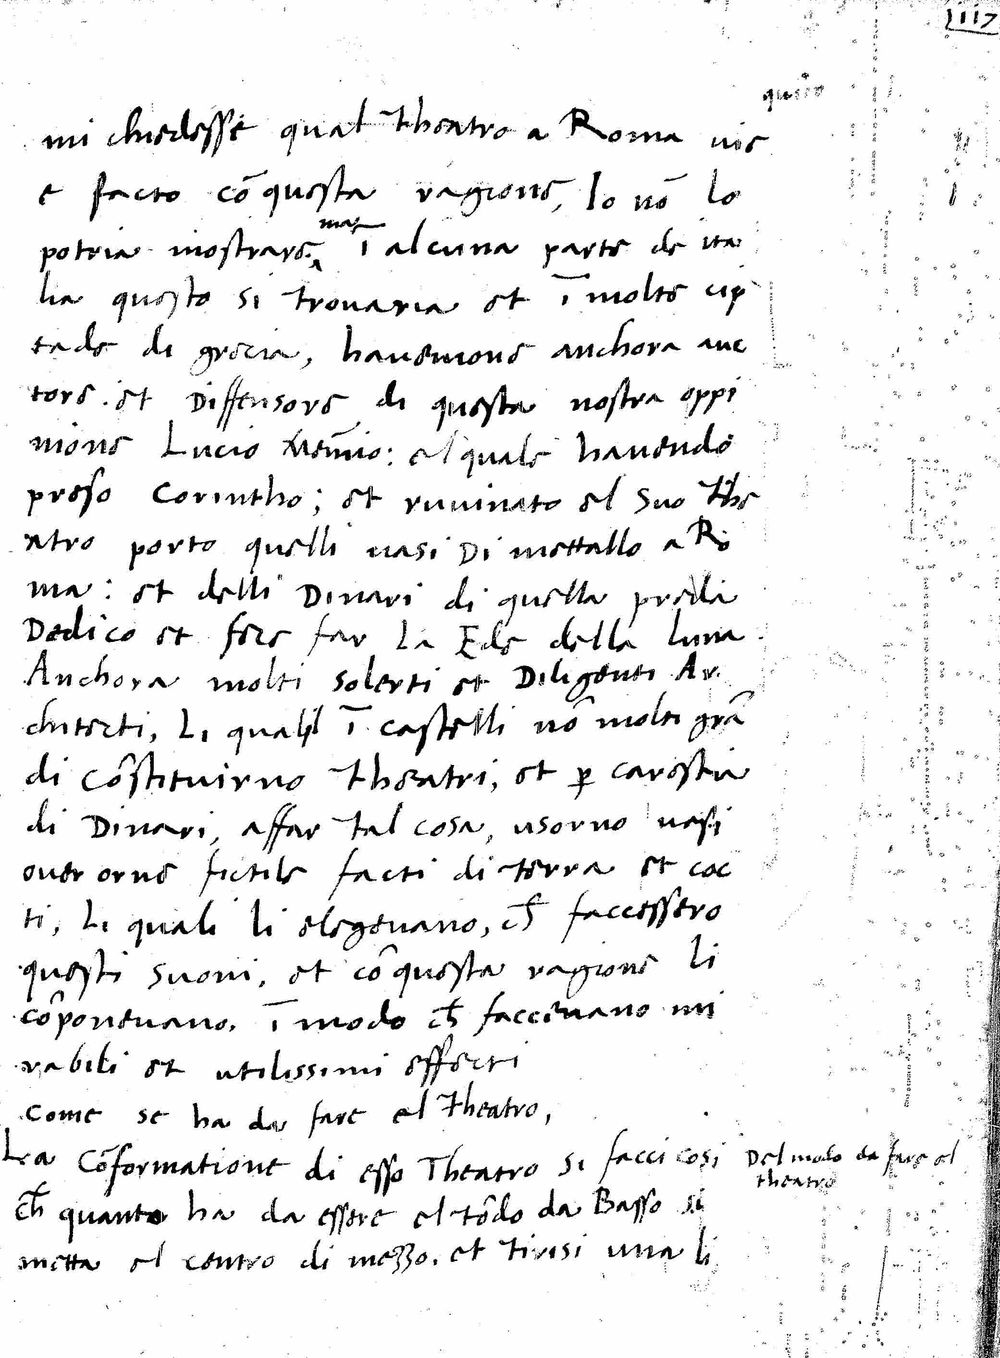 117
questo
mi chiedesse qual theatro a Roma vis
e facto cō questa ragione, Io nō lo
potria mostrare. ma ī alcuna parte de ita
lia questo si trovaria et ī molte cip
tade di grecia, havemone anchora auc
tore. et Diffensore di questa nostra oppi
nione Lucio Memio: el quale havendo
preso Corintho; et ruuinato el suo the
atro porto quelli uasi Di mettallo a Ro
ma: et delli Dinari di quella preda
Dedico et fece far La Ede della luna
Anchora molti solerti et Diligenti Ar.
chitecti, Li quali ī castelli nō molti grā
di cōstituirno theatri, et p carestia
di Dinari, affar tal cosa, usorno uasi
over orne fictile facti di terra et coc
ti, Li quali li elegevano, ch̄ faccessero
questi suoni, et cō questa ragione li
cōponevano. ī modo ch̄ faccevano mi
rabili et utilissimi effecti
Come se ha da fare el theatro,
La Cōformatione di esso Theatro si facci cosi
Del modo da fare el
theatro
ch̄ quanto ha da essere el tōdo da Basso si
metta el centro di mezzo. et tirisi una li